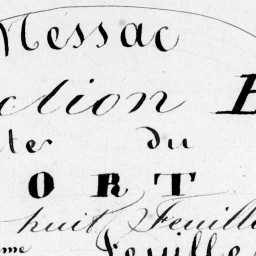 Messac
ction B
te du
ORT
huit Feuill
me Feuille